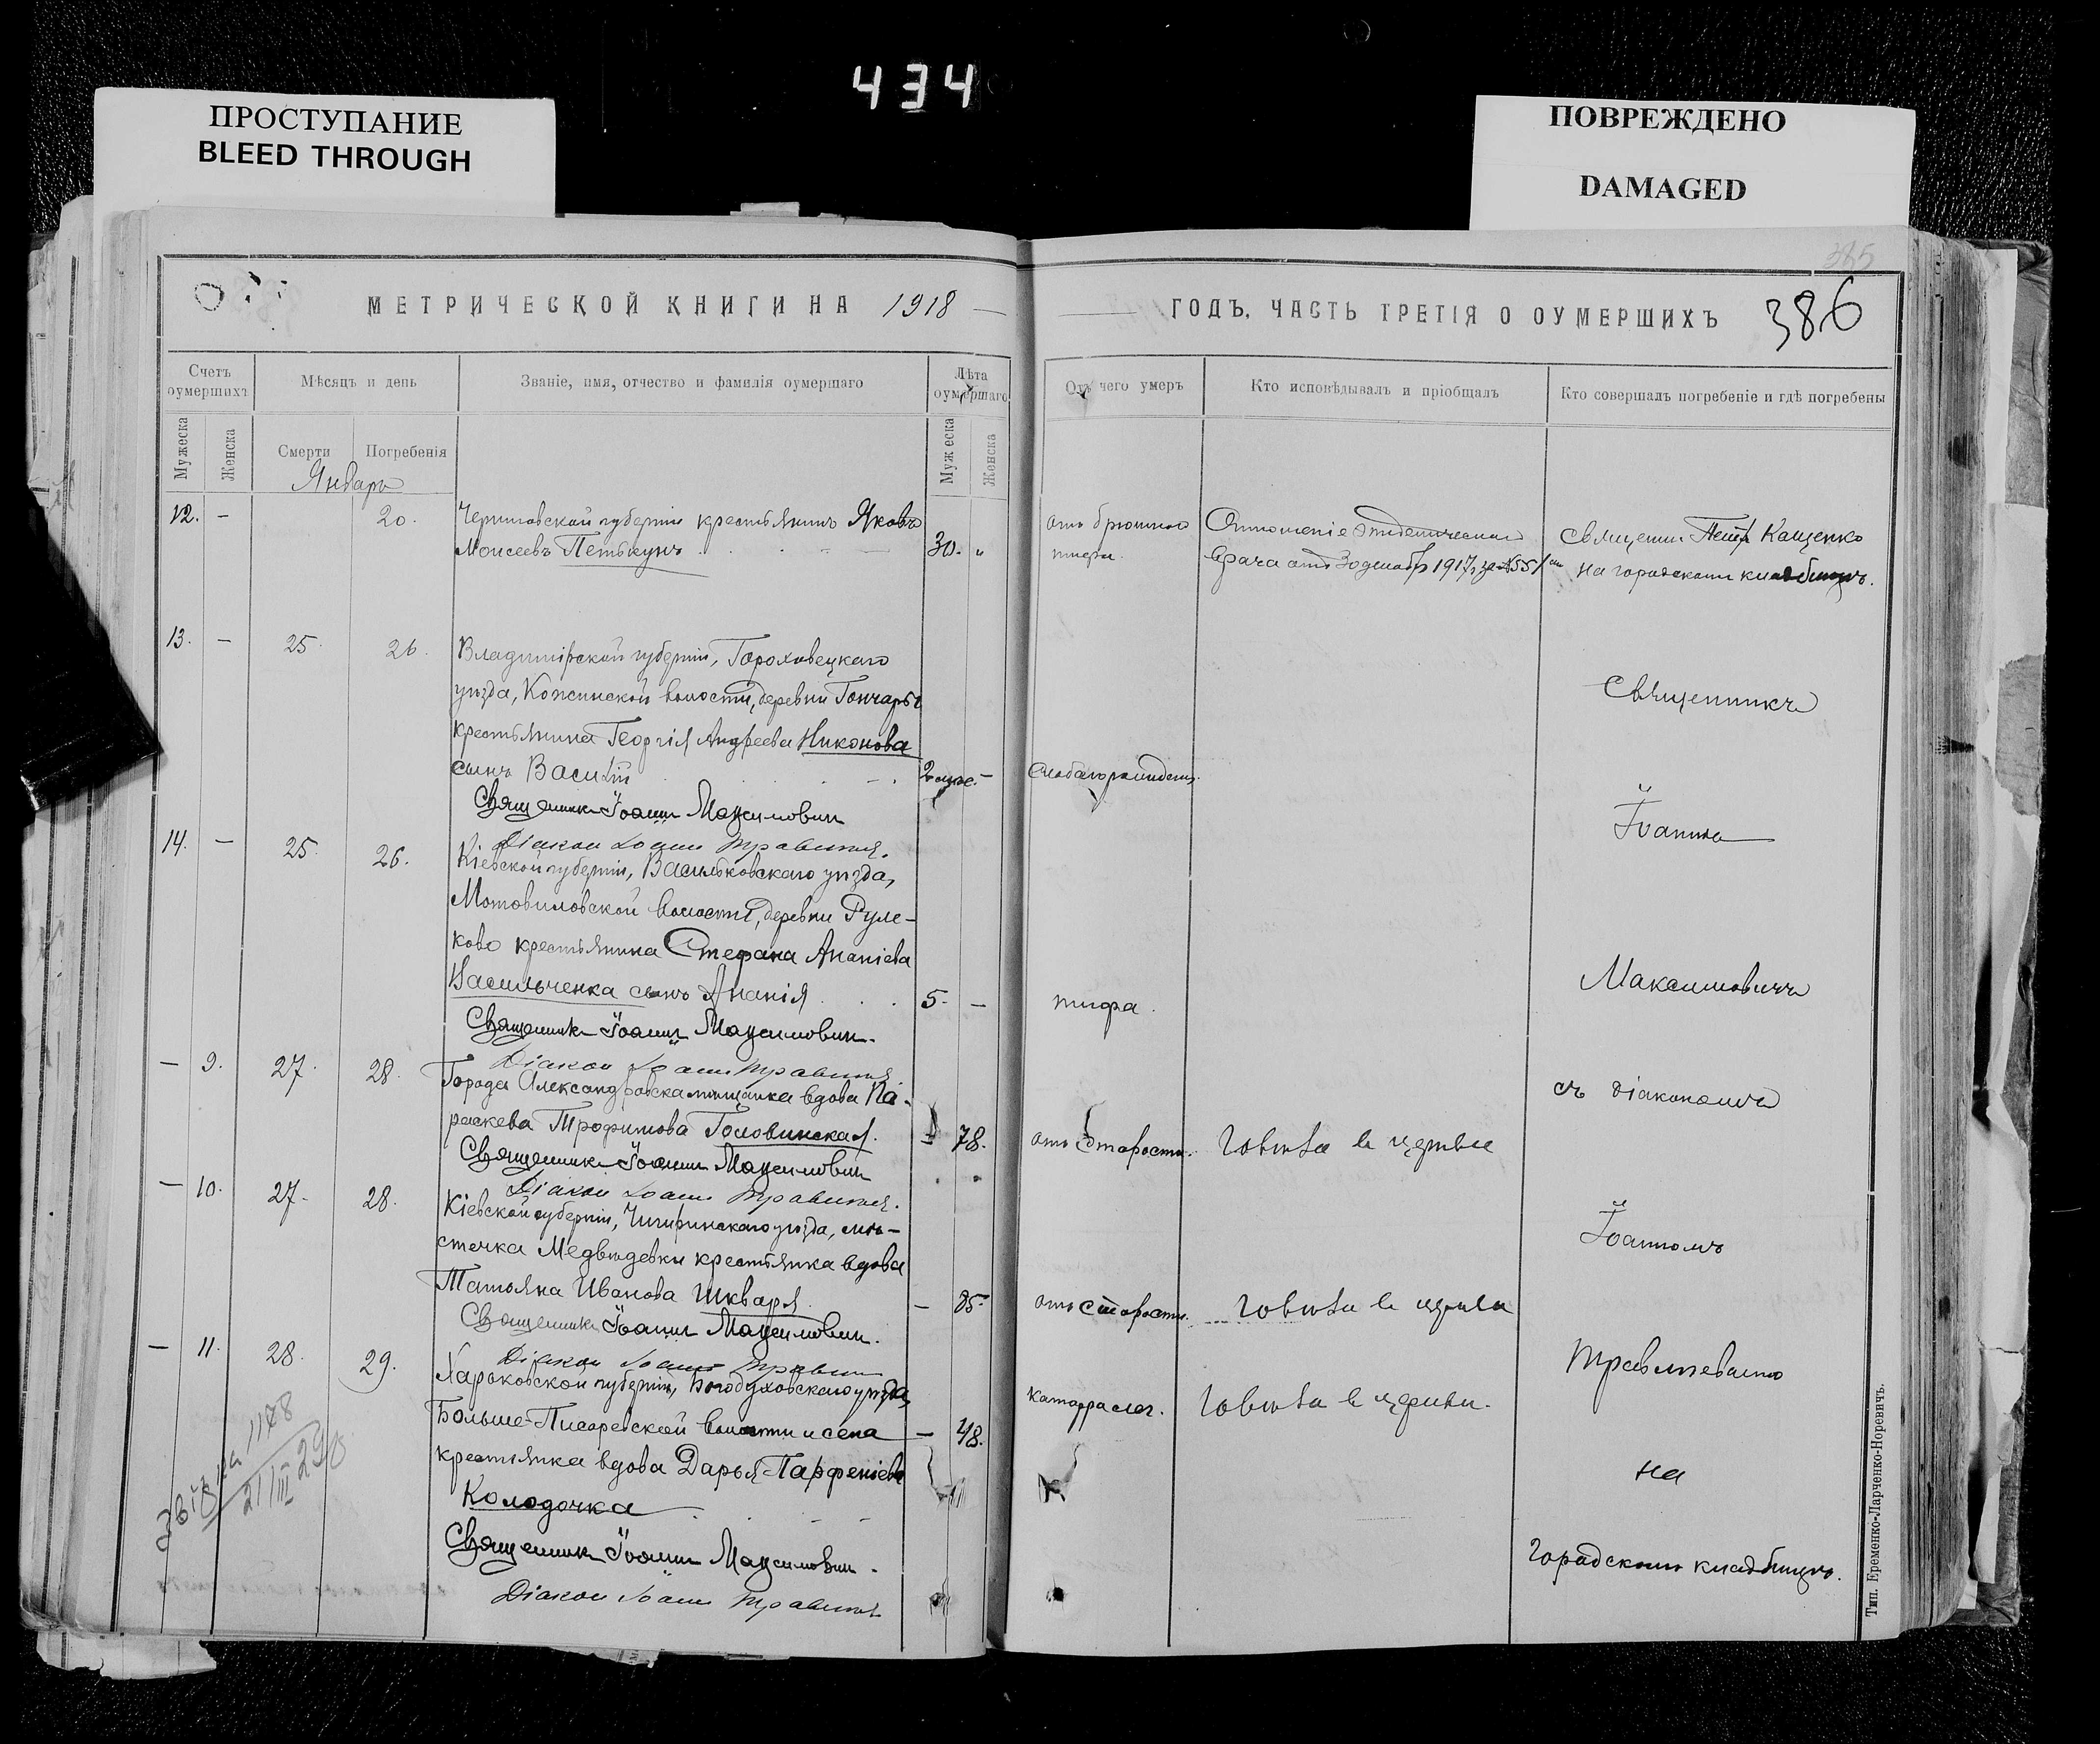 434
ПРОСТУПАНИЕ
BLEED THROUGH
ПОВРЕЖДЕНО
DAMAGED
МЕТРИЧЕСКОЙ КНИГИ НА 1918
Счетъ оумершихъ
Мѣсяцъ и день
Званіе, имя, отчество и фамилія оумершаго
Лѣта оумершаго
Мужеска
Женска
Смерти
Погребенія
Мужеска
Женска
Январь
12. — 20. Черниговской губерніи крестьянинъ Яковъ
Моисеевъ Петькунъ 30.
13. — 25. 26. Владимірской губерніи, Гороховецкаго
уѣзда, Кожинской волости, деревни Гончары
крестьянина Георгія Андреева Никонова
сынъ Василій 2 мѣс. —
Священникъ Іоаннъ Максимович
Діакон Іоанн
14. — 25. 26. Кіевской губерніи, Васильковскаго уѣзда,
Мотовиловской волости, деревни Руле-
ково крестьянина Стефана Ананіева
Васильченка сынъ Ананія 5. —
Священникъ Іоаннъ Максимович.
Діакон Іоанн
— 9. 27. 28. Города Александровска мѣщанка вдова Па-
раскева Трофимова Головинская. — 78.
Священникъ Іоаннъ Максимович
Діакон Іоанн
— 10. 27. 28. Кіевской губерніи, Чигиринскаго уѣзда, мѣ-
стечка Медвѣдевки крестьянка вдова
Татьяна Иванова Шкваря — 85.
Священникъ Іоаннъ Максимович.
Діакон Іоанн
— 11. 28. 29. Харьковской губерніи, Богодуховскаго уѣзда,
Больше-Писаревской волости и села — 48.
крестьянка вдова Дарья Парфеніева
Колодочка
Священникъ Іоаннъ Максимович.
Діакон Іоанн
1178
21/III 290
385
ГОДЪ, ЧАСТЬ ТРЕТІЯ О ОУМЕРШИХЪ 386
Отъ чего умеръ
Кто исповѣдывалъ и пріобщалъ
Кто совершалъ погребеніе и гдѣ погребены
отъ брюшного
тифа.
Отношеніе эпидемическаго
врача отъ 30 декабр 1917 г. за № 551
Священник Петр Кащенко
на городскомъ кладбищѣ.
Священникъ
слабаго рожденія.
Іоаннъ
Максимовичъ
тифа.
съ діакономъ
отъ старости. Говѣла в церкви
Іоанномъ
отъ старости. Говѣла в церкви
катарра лег. Говѣла в церкви.
на
городскомъ кладбищѣ.
Тип. Еременко-Ларченко-Норевичъ.